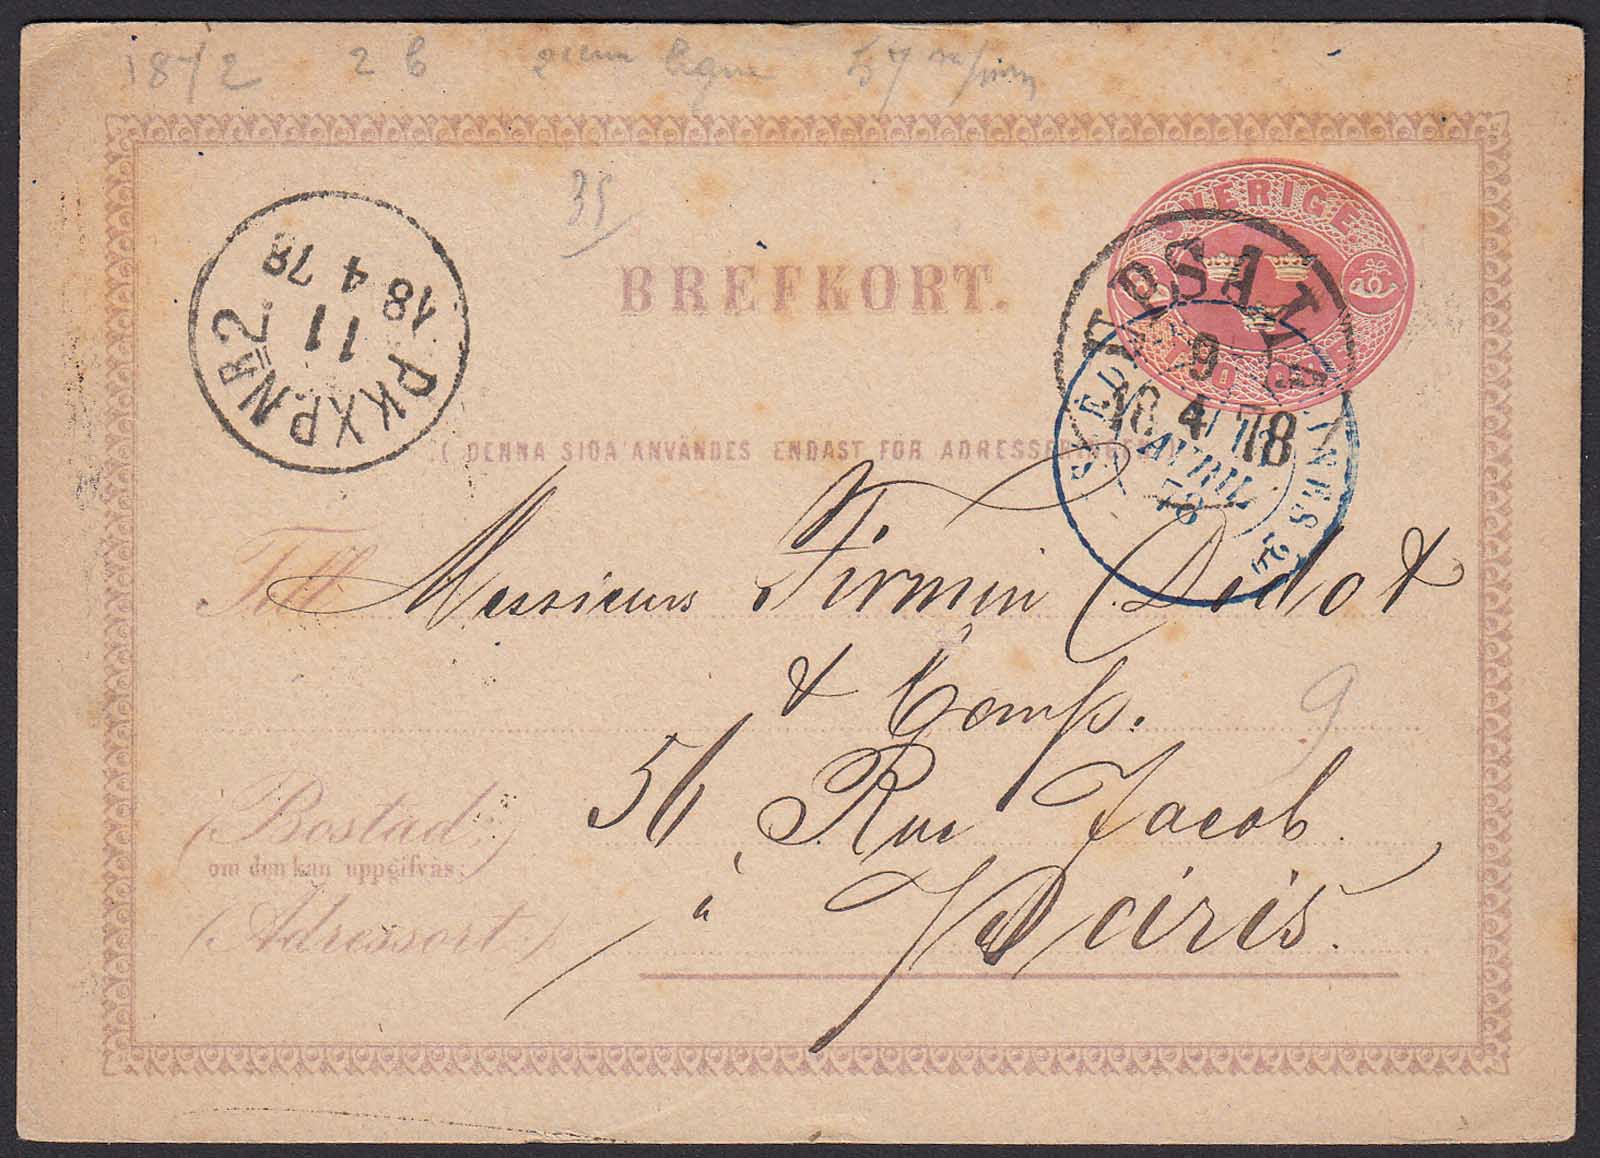 1872 2 b 57 m/m
35
SVERIGE
TIO ÖRE
BREFKORT.
UPSALA
9
18 4 78
PKXP.Nº2.
11
18 4 78
AVRIL
78
(DENNA SIDA ANVÄNDES ENDAST FÖR ADRESSERINGEN)
Till
Messieurs Firmin Didot
& Comp.
9
56 Rue Jacob
(Bostad,)
om den kan uppgifvas:
à Paris.
(Adressort.)